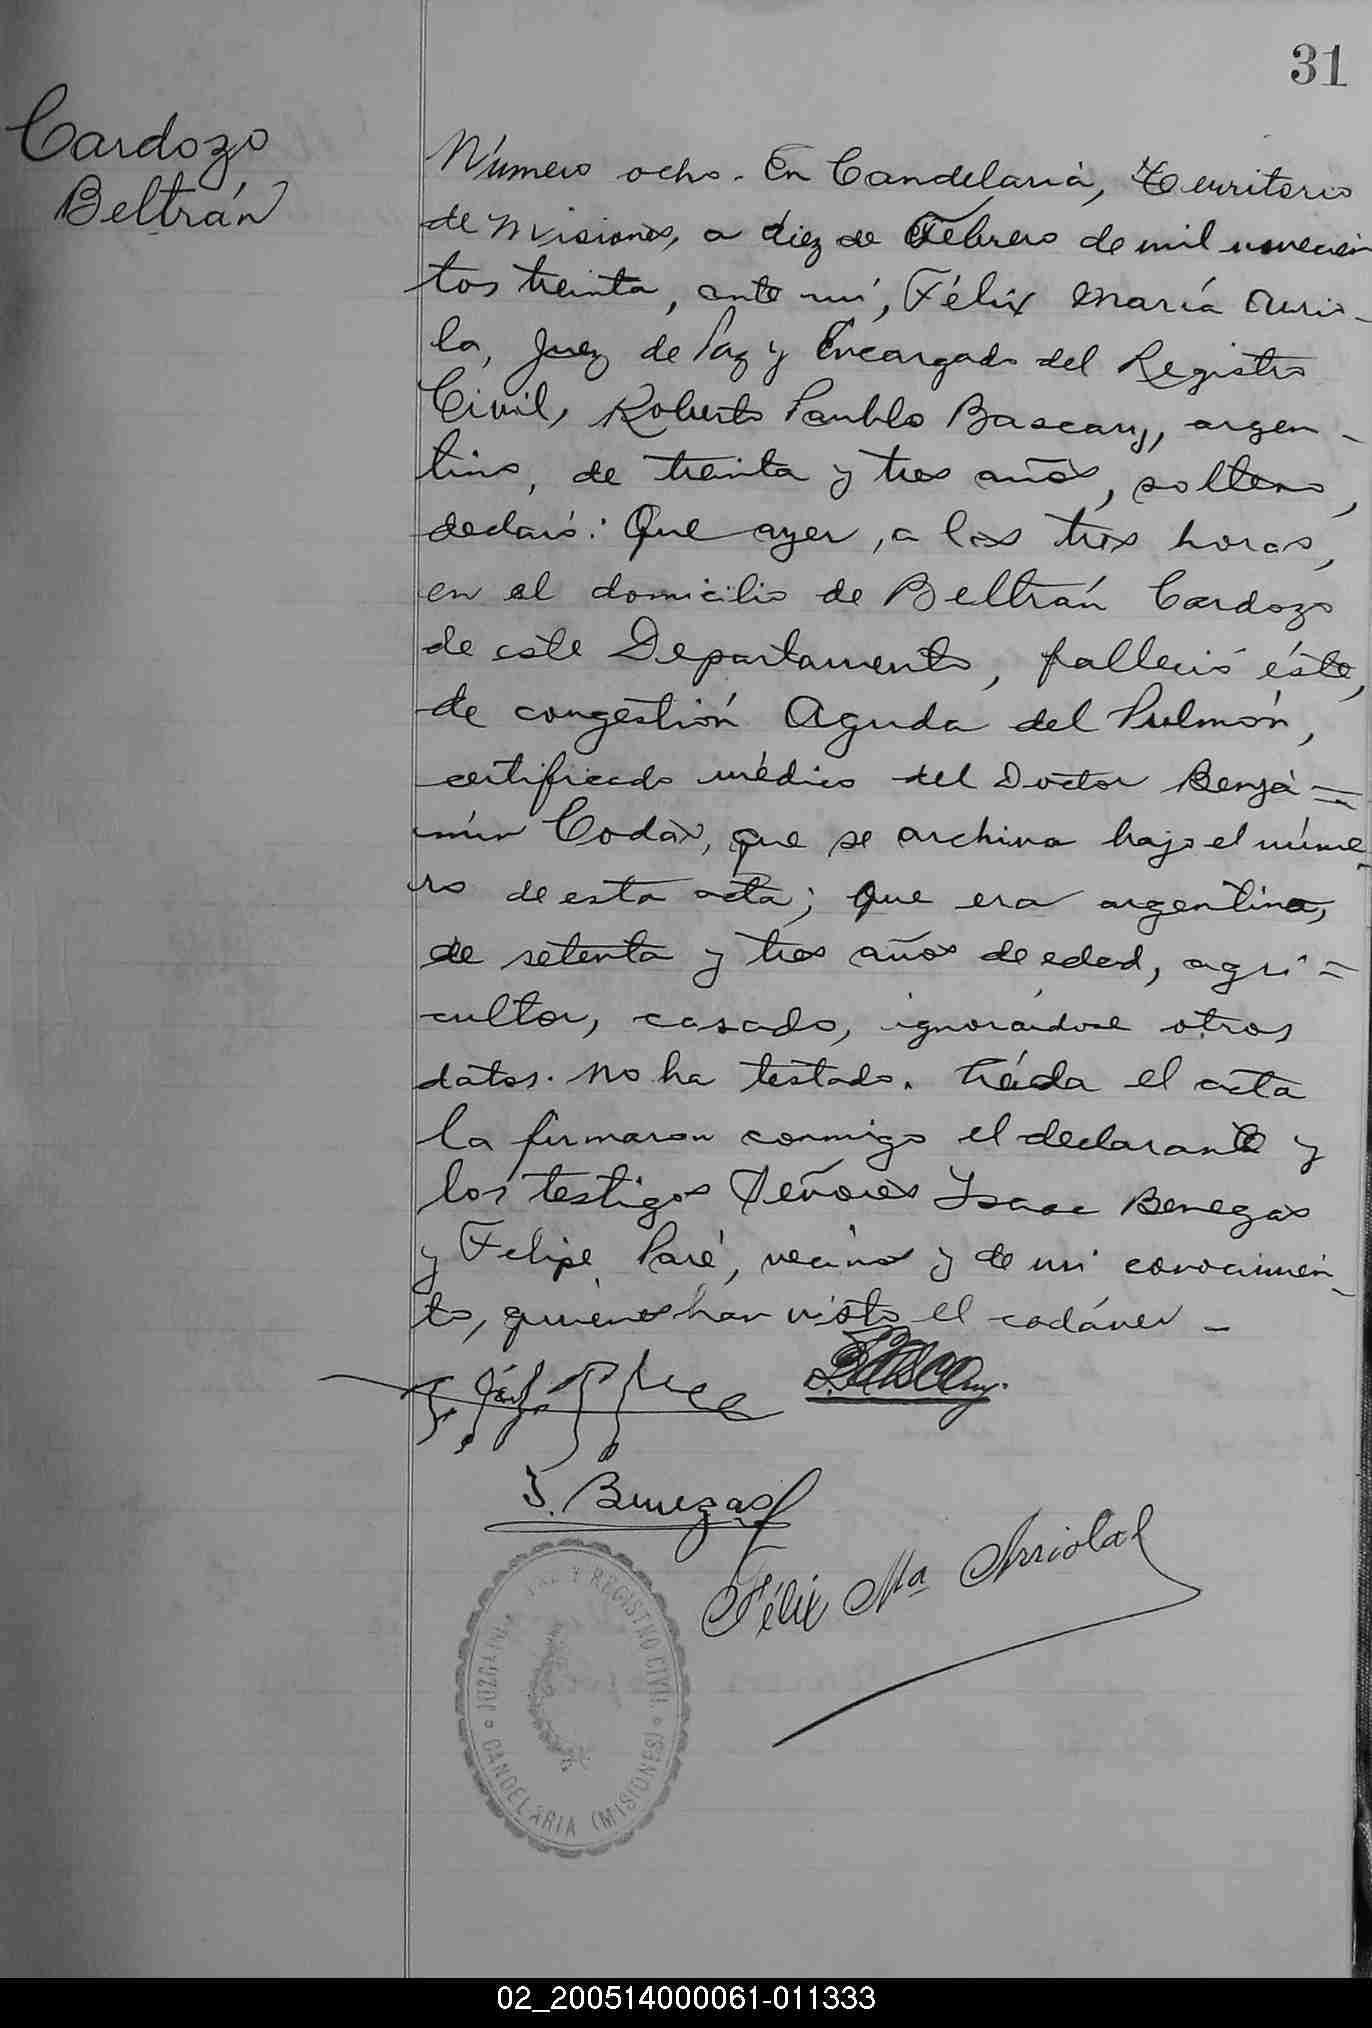 31
Cardozo
Beltrán
Número ocho. En Candelaria, Territorio
de Misiones, a diez de Febrero de mil novecien
tos treinta, ante mí, Félix María Arrio-
la, Juez de Paz y Encargado del Registro
Civil, Roberto Paublo Bascary, argen-
tino, de treinta y tres años, soltero,
declaró: Que ayer, a las tres horas,
en el domicilio de Beltrán Cardozo
de este Departamento, falleció éste,
de congestión Aguda del Pulmón,
certificado médico del Doctor Benja=
mín Codas, que se archiva bajo el núme-
ro de esta acta; que era argentino,
de setenta y tres años de edad, agri=
cultor, casado, ignorándose otros
datos. No ha testado. Leída el acta
la firmaron conmigo el declarante y
los testigos Señores Isaac Benegas
y Felipe Paré, vecinos y de mi conocimien-
to, quienes han visto el cadáver -
Bascary.
I. Benegas
Félix Ma Arriola
JUZGADO PAZ Y REGISTRO CIVIL
CANDELARIA (MISIONES)
02_200514000061-011333